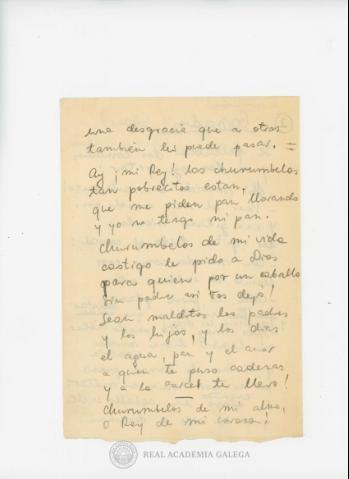 una desgracia que a otros
también les puede pasar. =
Ay ¡mi Rey! los churumbelos
tan pobrecitos estan,
que me piden pan llorando
y yo no tengo ni pan.
Churumbelos de mi vida
castigo le pido a Dios
para quien por un caballo
sin padre asi os dejó!
Sean malditos los padres
y los hijos, y los dias
el agua, pan y el amor
a quien te puso cadenas
y a la carcel te llevo!
Churumbelos de mi alma,
O Rey de mi corazon!
REAL ACADEMIA GALEGA